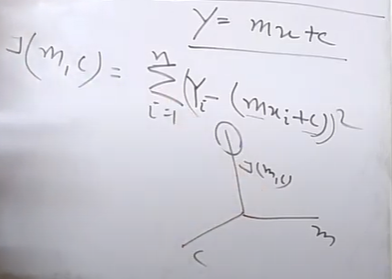 Y = mx+c
J(m,c) = n∑i=1 (Yi - (mxi+c))²
J(m,c)
m
c